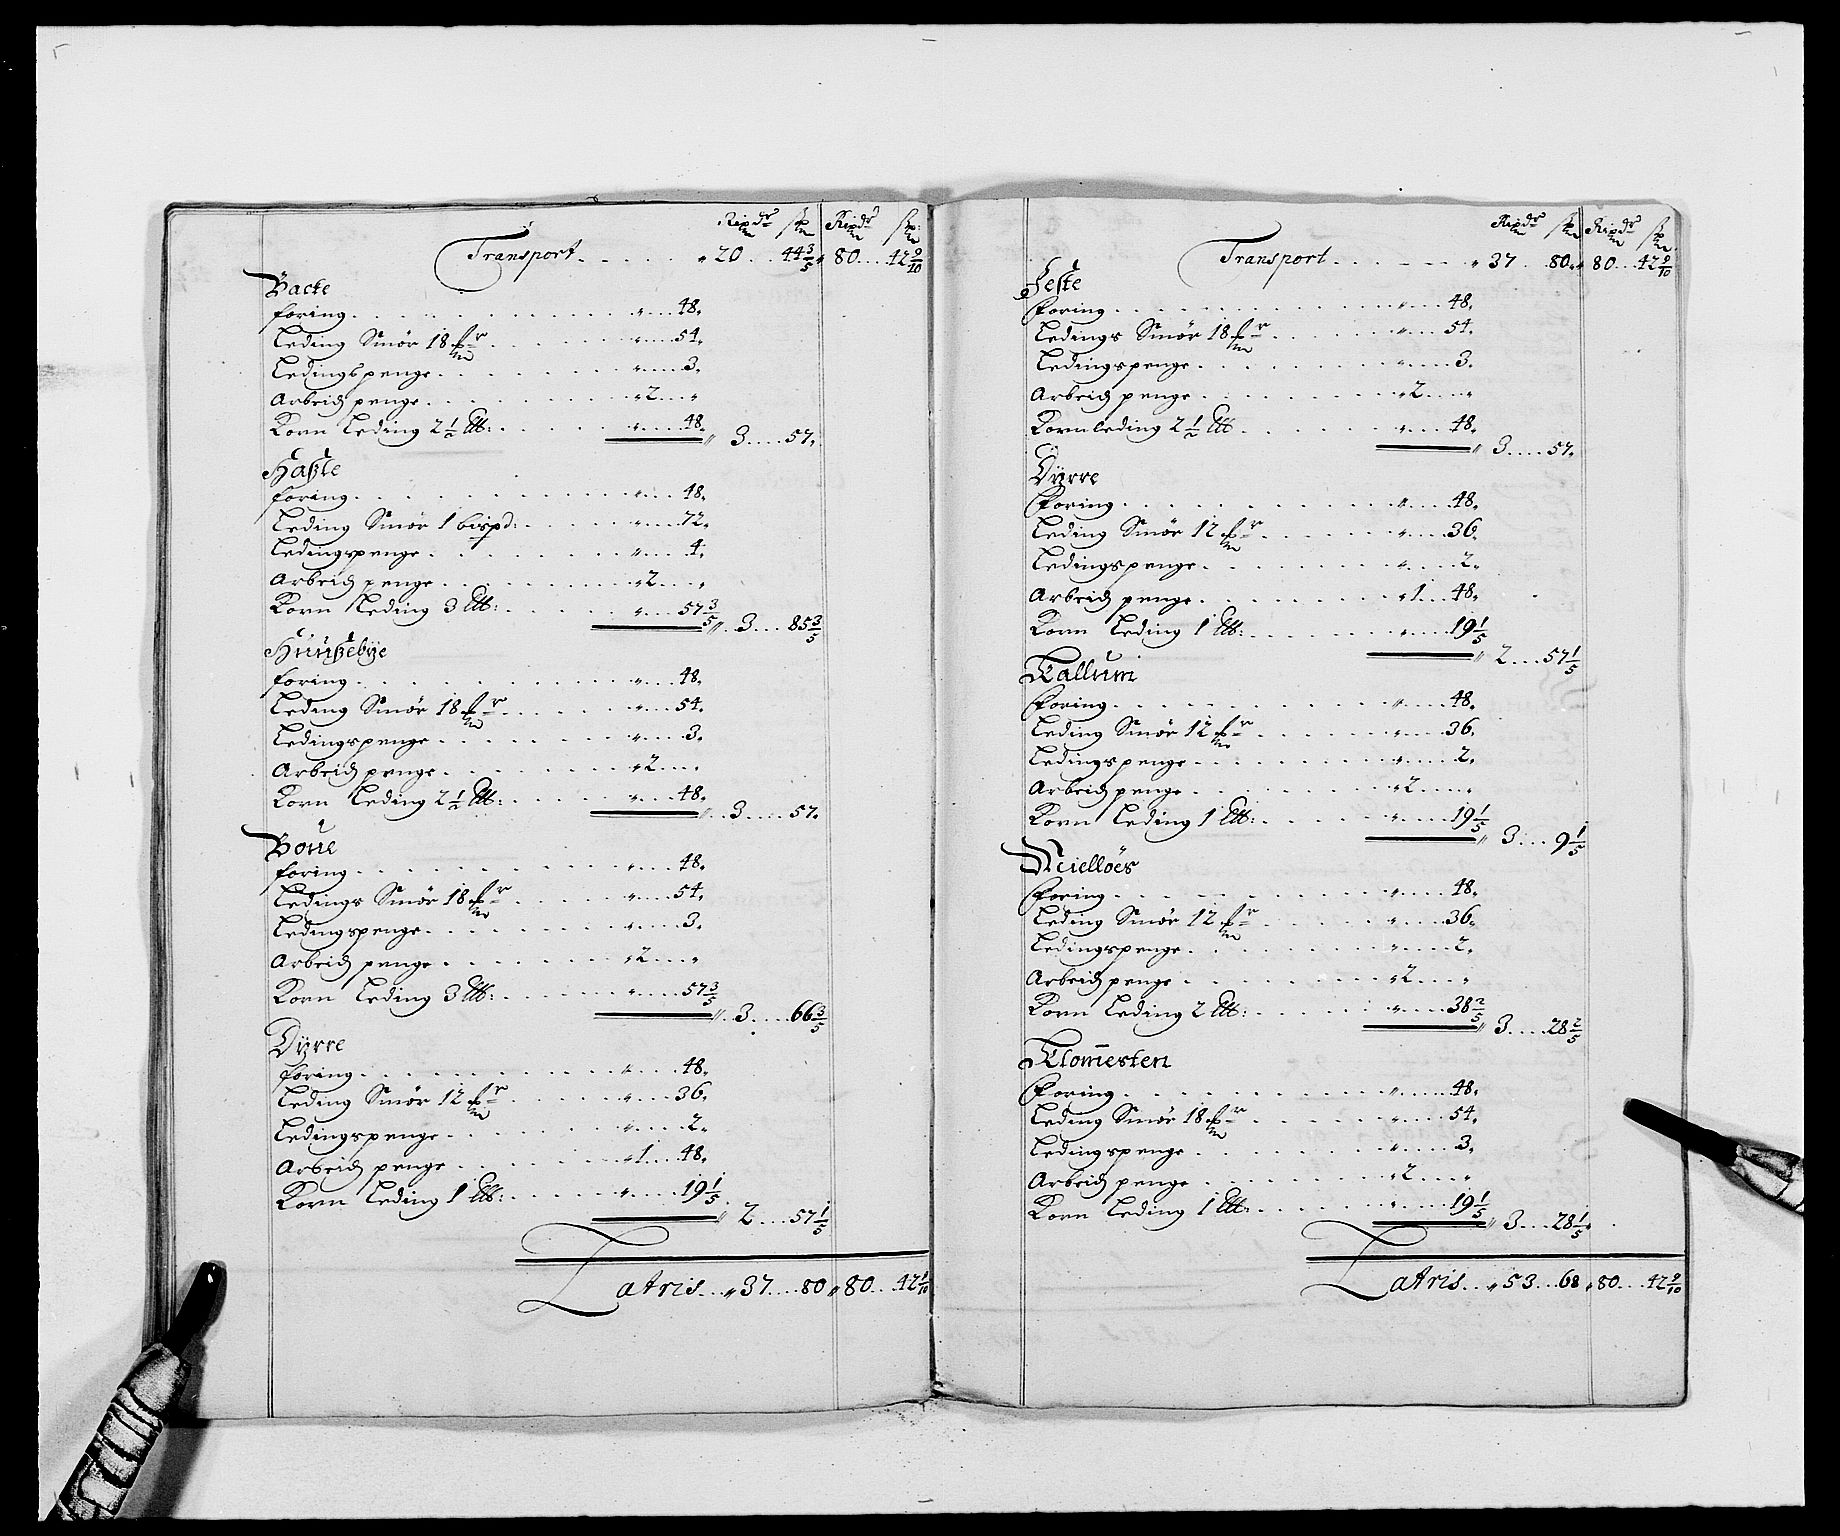 Rixdr ß Rixdr ß
Transport . . . . . . 20 . . . 44 3/5 80 . . . 42 9/10
Backe
foring . . . . 48.
Leding Smör 18 . . . . 54.
Ledingspenge . . . . 3.
Arbeids penge . . . . 2 . . .
Korn Leding 2 1/2 . . . . 48. 3 . . . . 57.
Haßle
foring . . . . 48.
Leding Smör 1 bispd: . . . . 72.
Ledingspenge . . . . 4.
Arbeids penge . . . . 2 . . .
Korn Leding 3 . . . . 57 3/5 3 . . . . 85 3/5
Hünßebÿe
foring . . . . 48.
Leding Smör 18 . . . . 54.
Ledingspenge . . . . 3.
Arbeids penge . . . . 2 . . .
Korn Leding 2 1/2 . . . . 48. 3 . . . . 57.
Boüe
foring . . . . 48.
Ledings Smör 18 . . . . 54.
Ledingspenge . . . . 3.
Arbeids penge . . . . 2 . . .
Korn Leding 3 . . . . 57 3/5 3 . . . . 66 3/5
Dÿrre
foring . . . . 48.
Leding Smör 12 . . . . 36.
Ledingspenge . . . . 2.
Arbeids penge . . . . 1 . . . 48.
Korn Leding 1 . . . . 19 1/5 2 . . . . 57 1/5
Latris . . . 37 . . . . 80 80 . . . 42 9/10
Rixdr ß Rixdr ß
Transport . . . . . . 37 . . . 80. 80 . . . 42 9/10
Jeste
Foring . . . . 48.
Ledings Smör 18 . . . . 54.
Ledingspenge . . . . 3.
Arbeids penge . . . . 2 . . .
Kornleding 2 1/2 . . . . 48. 3 . . . . 57.
Dÿrre
Foring . . . . 48.
Leding Smör 12 . . . . 36.
Ledingspenge . . . . 2.
Arbeids penge . . . . 1 . . . 48.
Korn Leding 1 . . . . 19 1/5 2 . . . . 57 1/5
Kallum
Foring . . . . 48.
Leding Smör 12 . . . . 36.
Ledingspenge . . . . 2.
Arbeids penge . . . . 2 . . .
Korn Leding 1 . . . . 19 1/5 3 . . . 9 1/5
Mielløes
Foring . . . . 48.
Leding Smör 12 . . . . 36.
Ledingspenge . . . . 2.
Arbeids penge . . . . 2 . . .
Korn Leding 2 . . . . 38 2/5 3 . . . . 28 2/5
Klom̄esten
Foring . . . . 48.
Leding Smör 18 . . . . 54.
Ledingspenge . . . . 3.
Arbeids penge . . . . 2 . . .
Korn Leding 1 . . . . 19 1/5 3 . . . 28 1/5
Latris . . . 53 . . . 68 80 . . . 42 9/10